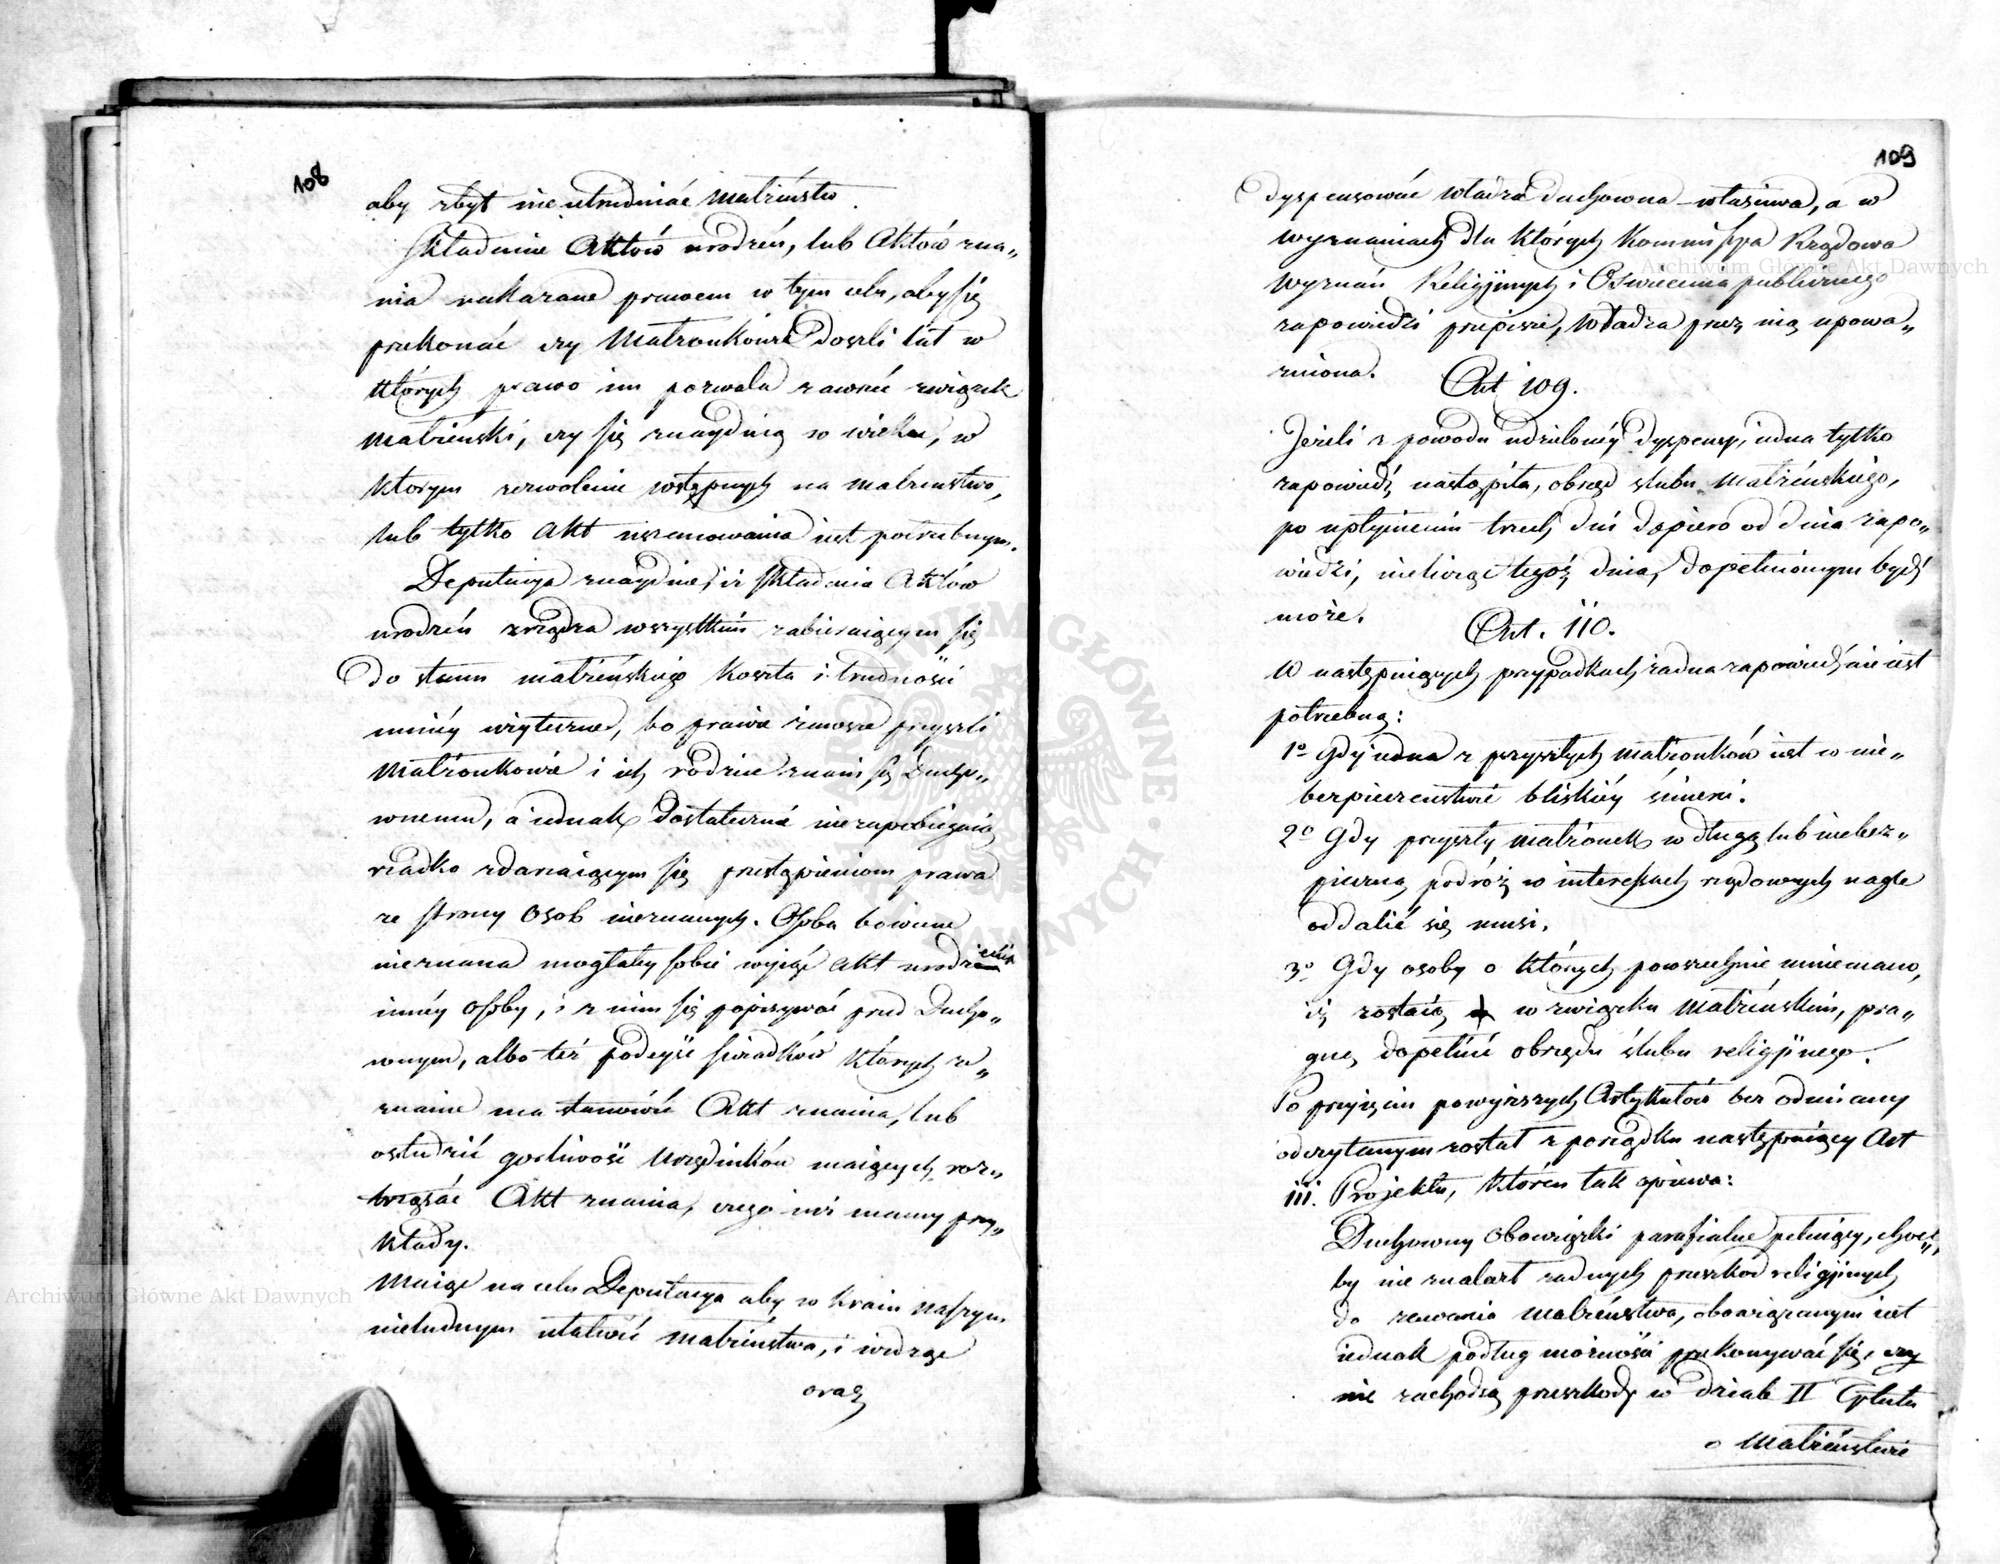 108
aby zbyt nie utrudniać małżeństw.
Składanie Aktów urodzeń, lub Aktów zna„
nia nakazane prawem w tym celu, aby się
przekonać czy Małżonkowie doszli lat w
których prawo im pozwala zawrzeć związek
małżeński, czy się znaydują w wieku, w
ktorym zezwolenie wstępnych na małżeństwo,
lub tylko Akt uszanowania iest potrzebnym.
Deputacya znayduie, iż składanie Aktów
urodzeń zrządza wszystkim zabieraiącym się
do stanu małżeńskiego koszta i trudności
mniéy użyteczne, bo prawie zawsze przyszli
Małżonkowie i ich rodzice znani są Ducho„
wnemu, a iednak dostatecznie niezapobiegaią
rzadko zdarzaiącym się przestąpieniom prawa
ze strony osob nieznanych. Osoba bowiem
nieznana mogłaby sobie wyiąć Akt urodzenia
innéy osoby, i z nim się popisywać przed Ducho„
wnym, albo też podeyść świadków których ze„
znanie ma stanowić Akt znania, lub
ostudzić gorliwość Urzędników maiących roz„
trząsać Akt znania, czego iuż mamy przy„
kłady.
Maiąc na celu Deputacya aby w kraiu naszym
nieludnym ułatwić małżeństwa, i widząc
oraz
109
dyspensować Władza duchowna właściwa, a w
wyznaniach dla których Kommissya Rządowa
Wyznań Religijnych i Oświecenia publicznego
zapowiedzi przepisze, Władza przez nią upowa„
żniona.
Art 109.
Jeżeli z powodu udzielonéy dyspensy, iedna tylko
zapowiedź nastąpiła, obrzęd ślubu małżeńskiego,
po upłynieniu trzech dni dopiero od dnia zapo„
wiedzi, nielicząc tegoż dnia, dopełnionym bydź
może.
Art. 110.
W następuiących przypadkach żadna zapowiedź nie iest
potrzebną:
1o Gdy iedna z przyszłych małżonków iest w nie„
bezpieczeństwie bliskiéy śmierci.
2o Gdy przyszły małżonek w długą lub niebez„
pieczną podróż w interessach rządowych nagle
oddalić się musi.
3o Gdy osoby o których powszechnie mniemano,
iż zostaią w związku Małżeńskim, pra„
gną dopełnić obrzędu ślubu religijnego.
Po przyięciu powyższych Artykułów bez odmiany
odczytanym został z porządku następuiący Art
111. Projektu, który tak opiewa:
Duchowny obowiązki parafialne pełniący, choć„
by nie znalazł żadnych przeszkód religijnych
do zawarcia małżeństwa, obowiązanym iest
iednak podług możności przekonywać się, czy
nie zachodzą przeszkody w dziale II Tytułu
o Małżeństwie
Archiwum Główne Akt Dawnych
Archiwum Główne Akt Dawnych
ARCHIWUM GŁÓWNE AKT DAWNYCH